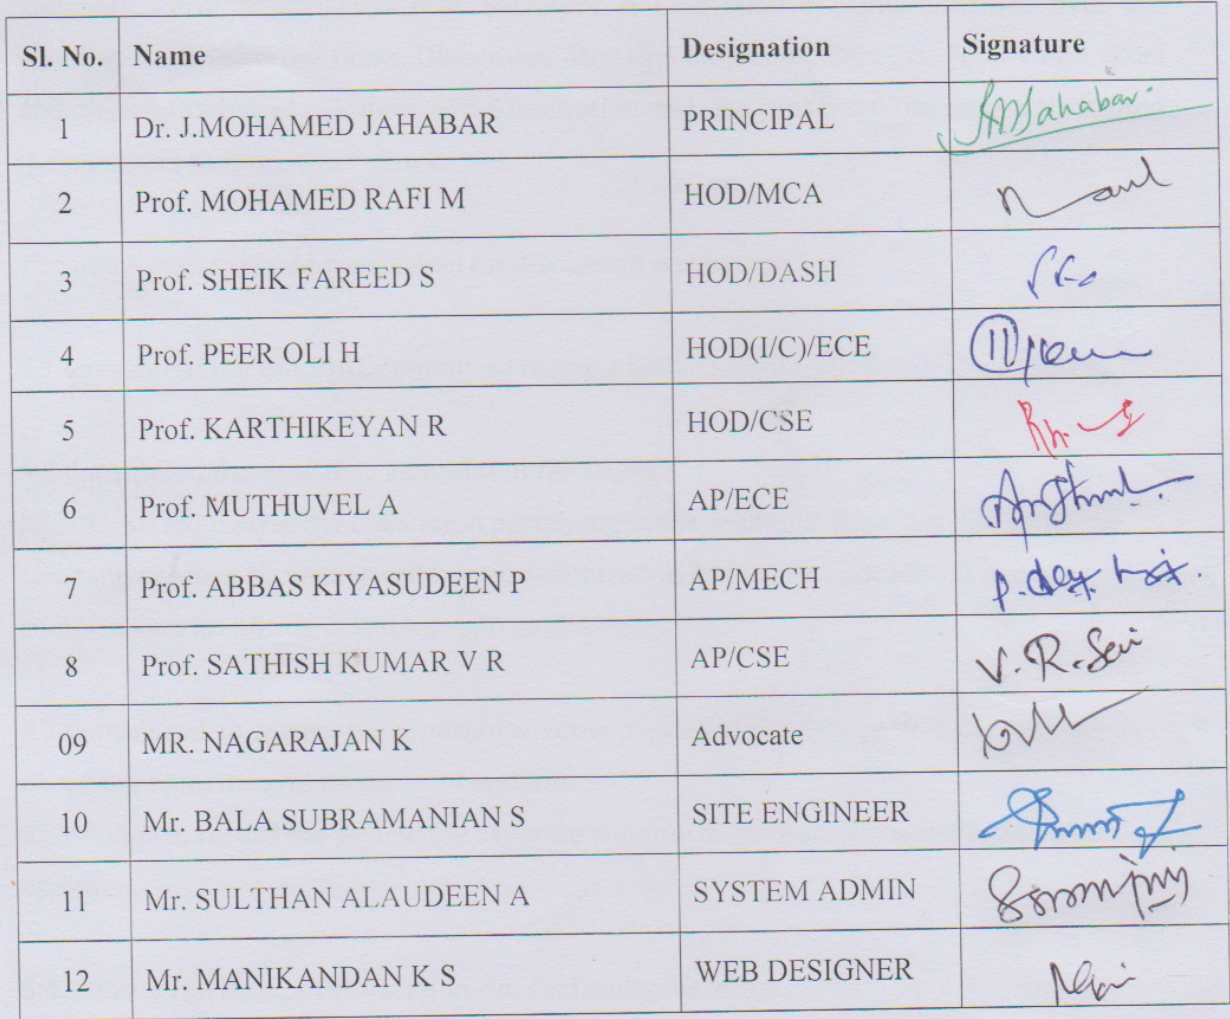 Sl. No. Name Designation Signature
1 Dr. J.MOHAMED JAHABAR PRINCIPAL Jahabar.
2 Prof. MOHAMED RAFI M HOD/MCA
3 Prof. SHEIK FAREED S HOD/DASH
4 Prof. PEER OLI H HOD(I/C)/ECE
5 Prof. KARTHIKEYAN R HOD/CSE
6 Prof. MUTHUVEL A AP/ECE
7 Prof. ABBAS KIYASUDEEN P AP/MECH
8 Prof. SATHISH KUMAR V R AP/CSE V.R.
09 MR. NAGARAJAN K Advocate
10 Mr. BALA SUBRAMANIAN S SITE ENGINEER
11 Mr. SULTHAN ALAUDEEN A SYSTEM ADMIN
12 Mr. MANIKANDAN K S WEB DESIGNER